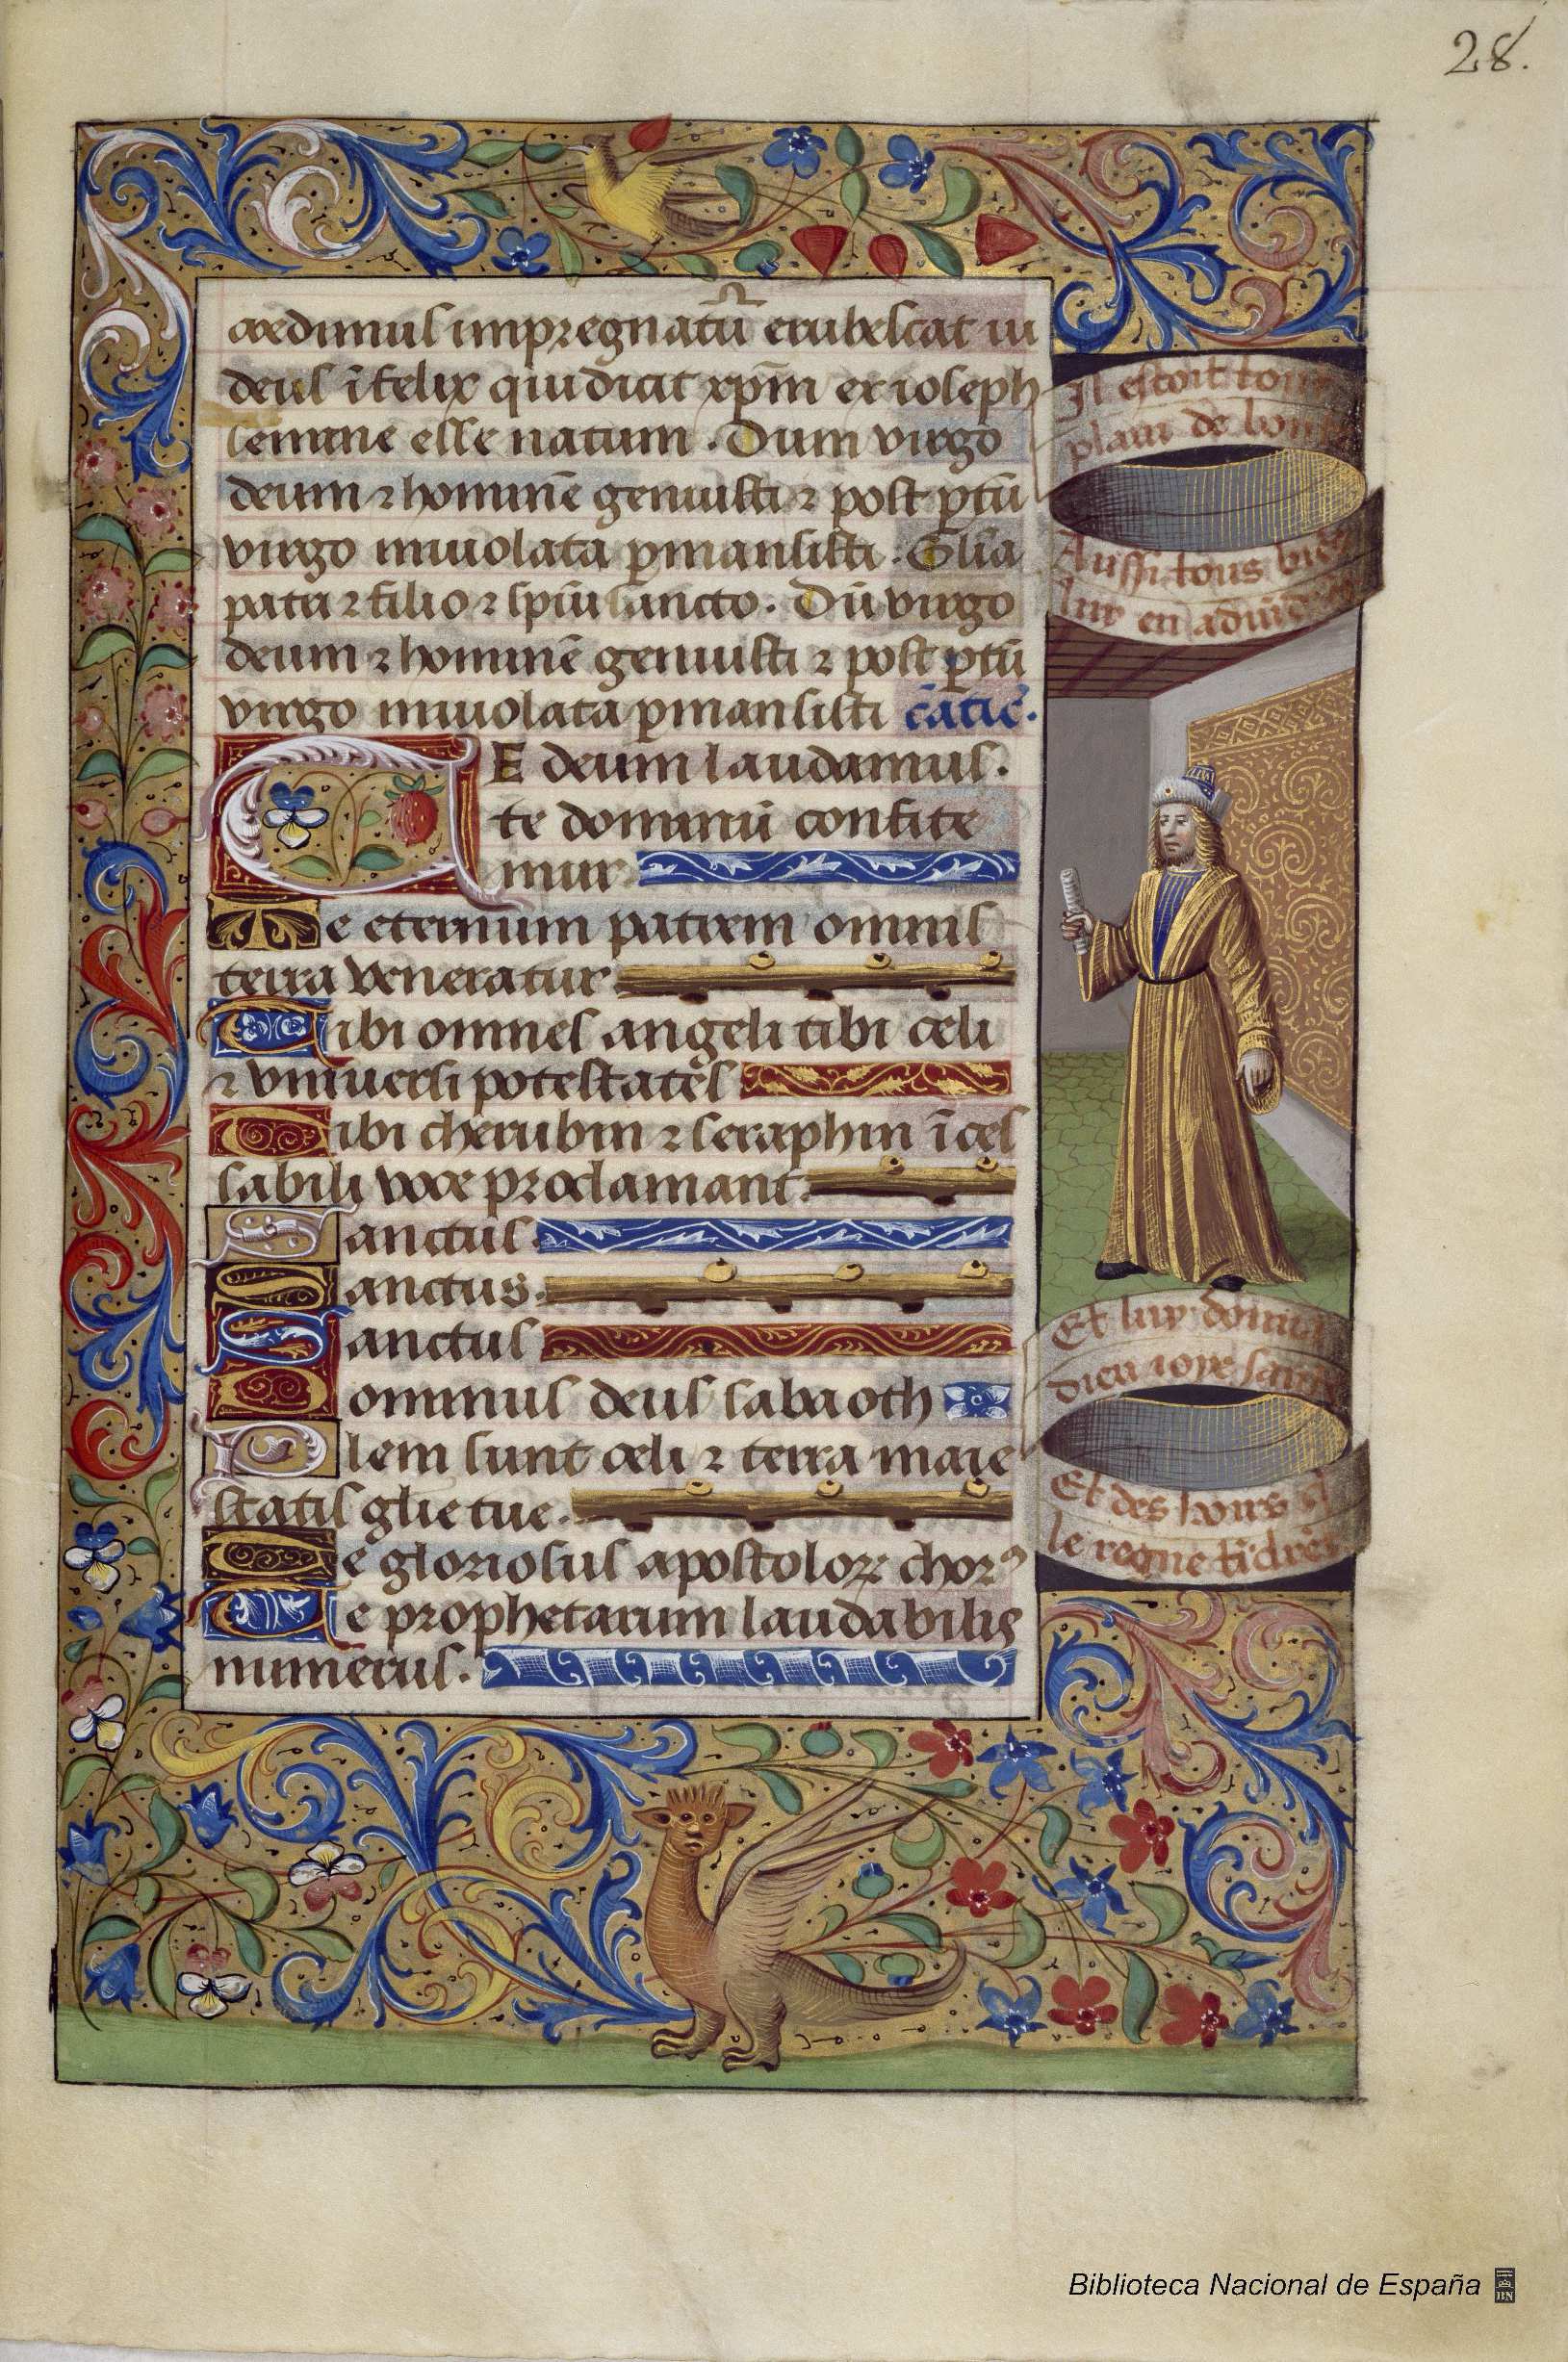 28.
credimus impregnatū erubescat iu
deus īfelix qui dicit xpm̄ ex ioseph
semine esse natum. Dum virgo
deum ⁊ hominē genuisti ⁊ post ptū
virgo inuiolata pmansisti. Glīa
patri ⁊ filio ⁊ spiui sancto. Dū virgo
deum ⁊ hominē genuisti ⁊ post ptū
virgo inuiolata pmansisti
TE deum laudamus.
te dominū confite
mur
Te eternum patrem omnis
terra veneratur
Tibi omnes angeli tibi celi
⁊ vniuersi potestates
Tibi cherubin ⁊ seraphin īces
sabili voce proclamant.
Sanctus.
Sanctus.
Sanctus
Dominus deus sabaoth
Pleni sunt celi ⁊ terra maie
statis glīe tue.
Te gloriosus apostoloꝝ chorꝰ
Te prophetarum laudabilis
numerus.
Il estoit tout
plain de bonte
Aussi tous
luy en
Et luy donna
dieu ioye
Et des hoirs
le regne
Biblioteca Nacional de España